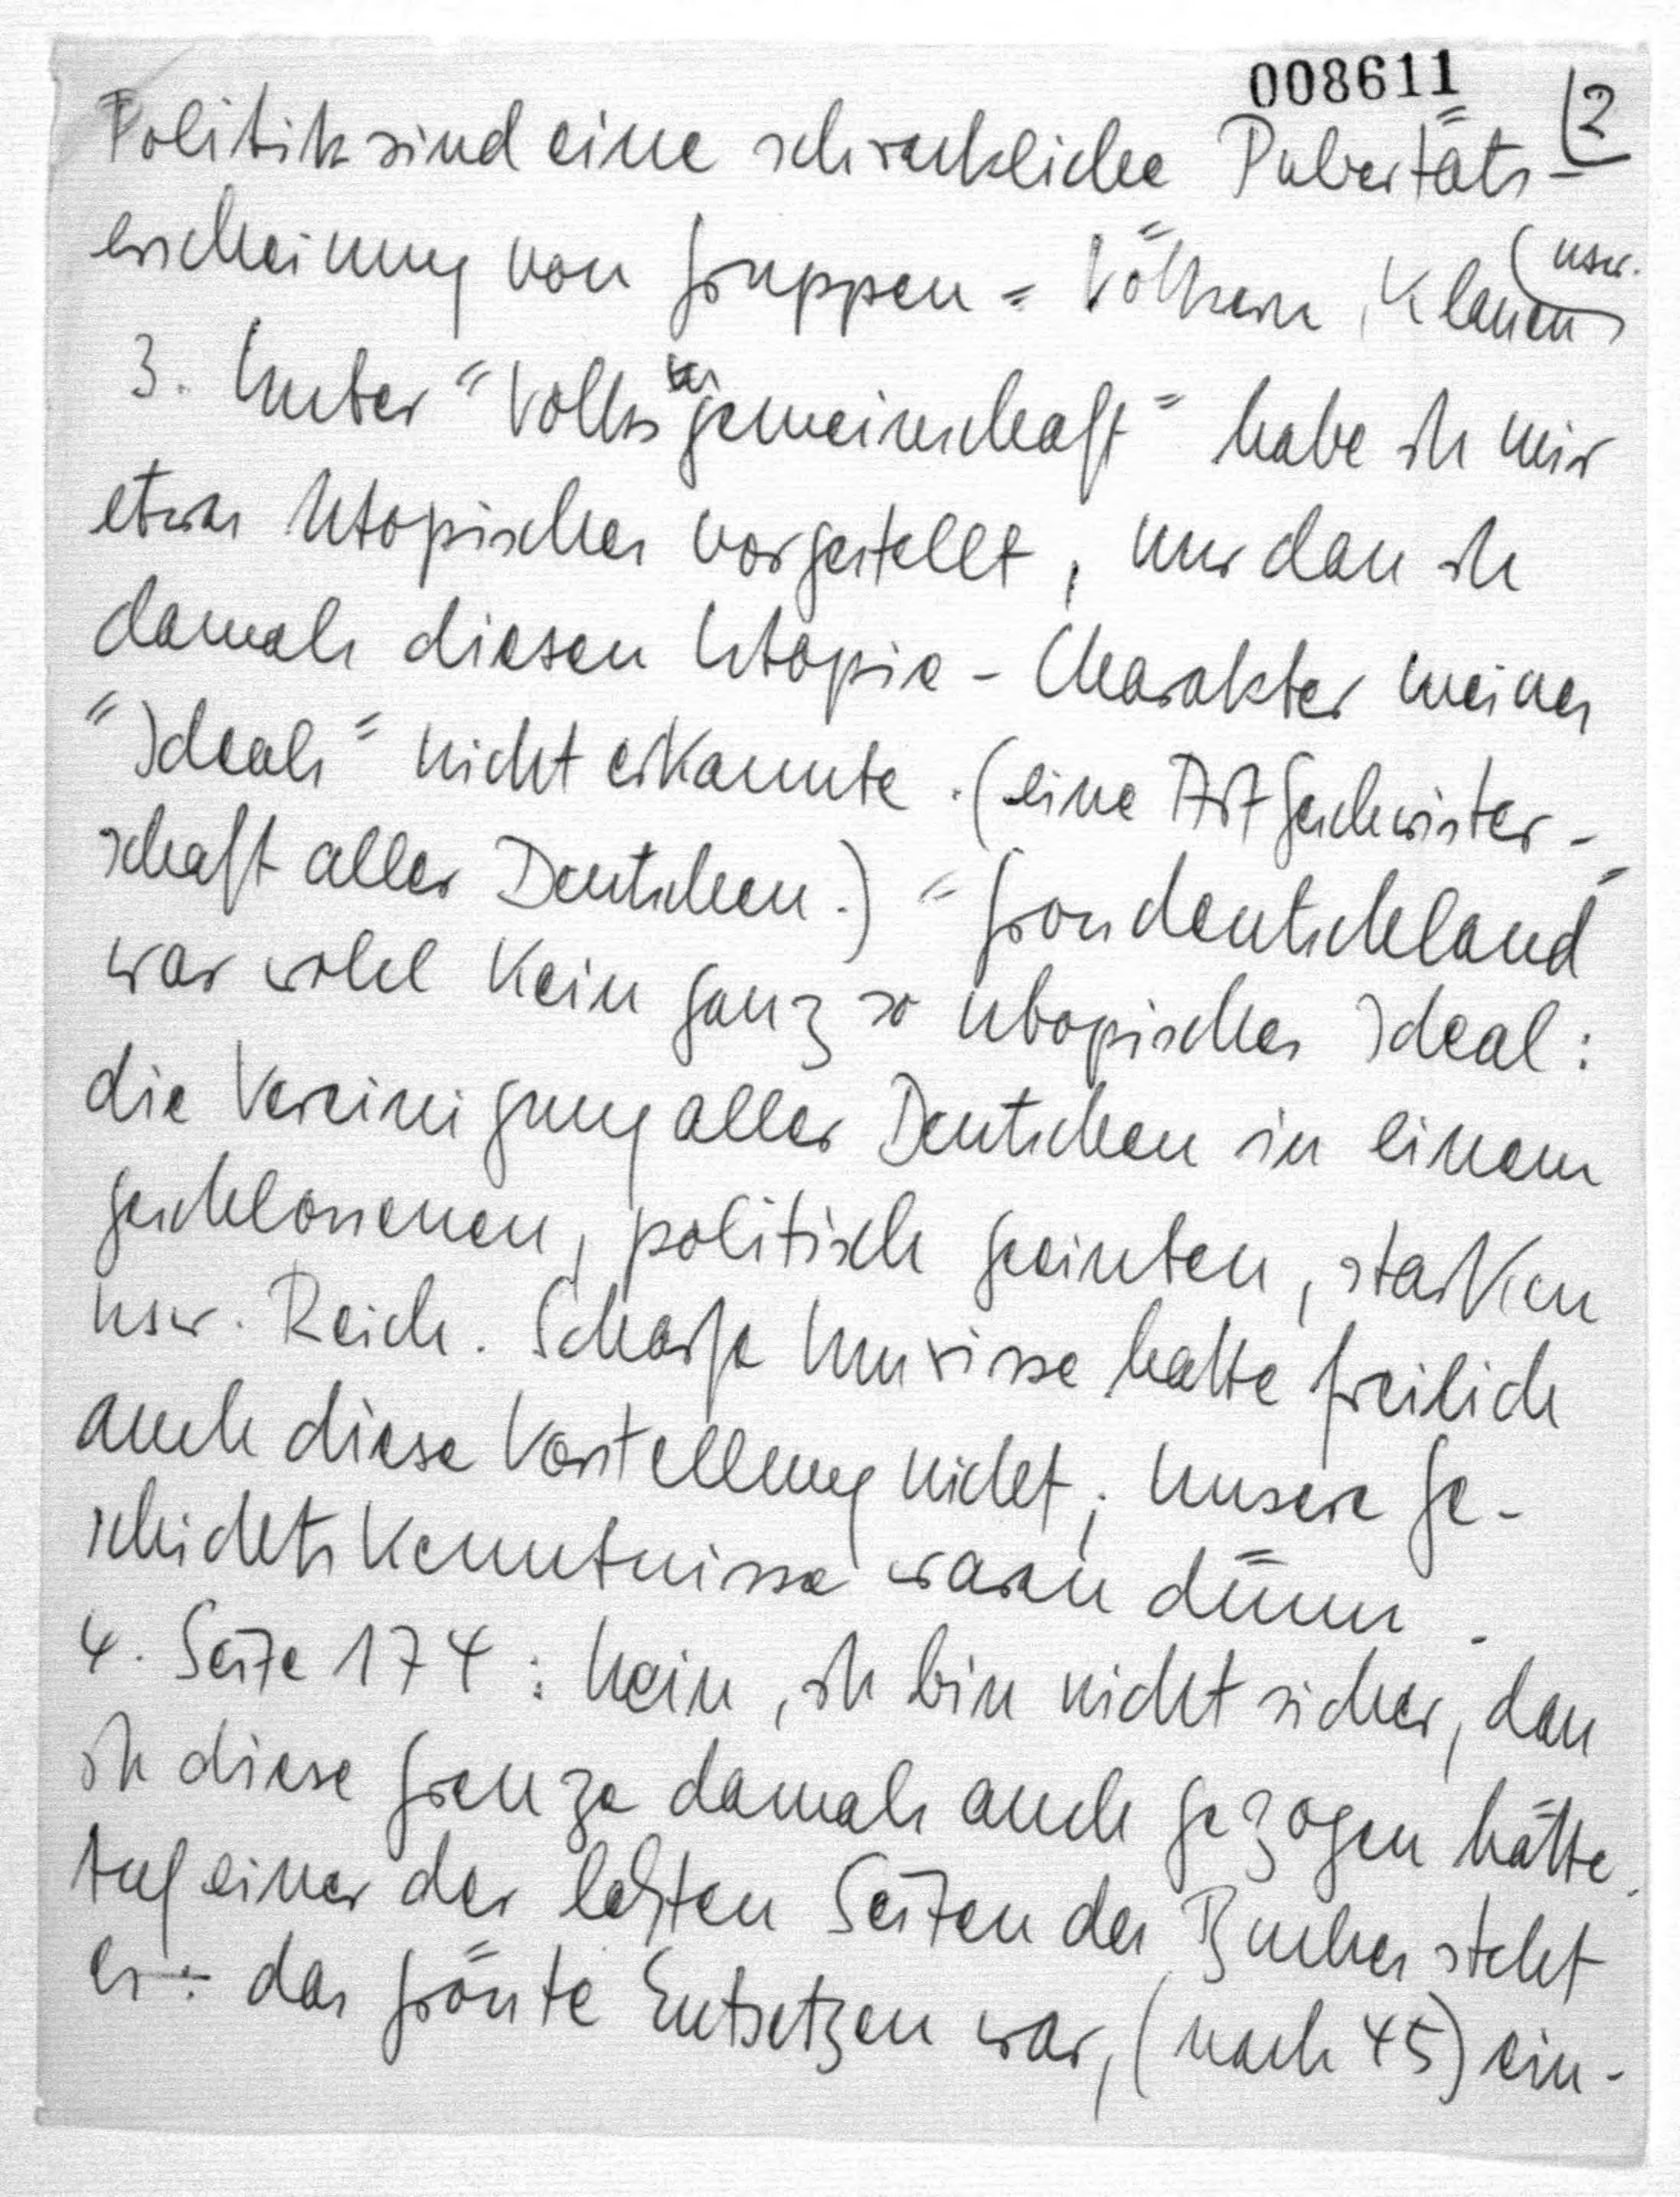 008611
2
Politik sind eine schreckliche Pubertäts-
erscheinung von Gruppen = Völkern, Klassen
usw.
3. Unter "Volksgemeinschaft" habe ich mir
etwas Utopisches vorgestellt, nur dass ich
damals diesen Utopie-Charakter meines
"Ideals" nicht erkannte. (eine Art Geschwister-
schaft aller Deutschen.) "Grossdeutschland"
war wohl kein ganz so utopisches Ideal:
die Vereinigung aller Deutschen in einem
geschlossenen, politisch geeinten, starken
usw. Reich. Scharfe Umrisse hatte freilich
auch diese Vorstellung nicht; unsere Ge-
schichtskenntnisse waren dünn.
4. Seite 174: Nein, ich bin nicht sicher, dass
ich diese Grenze damals auch gezogen hätte.
Auf einer der letzten Seiten des Buches steht
es: das grösste Entsetzen war, (nach 45) ein-